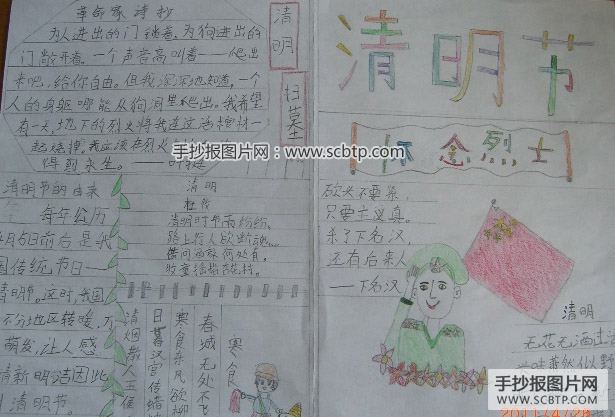 革命家诗抄
为人进出的门锁着,为狗进出的
门敞开着。一个声音高叫着——爬出
来吧,给你自由。但我深深地知道,一个
人的身躯哪能从狗洞里爬出。我希望
有一天,地下的烈火将我连这活棺材一
起烧掉,我应该在烈火
得到永生。——叶挺
清明
扫墓
清明节
怀念烈士
手抄报图片网:www.scbtp.com
清明节的由来
每年公历
4月5日前后是我
国传统节日——
清明节。这时,我国
不分地区转暖,万
萌发,让人感
清新明洁因此
清明节
清明
杜牧
清明时节雨纷纷,
路上行人欲断魂。
借问酒家何处有,
牧童遥指杏花村。
寒食
春城无处不飞
寒食东风欲柳
日暮汉宫传蜡
清烟散入五侯
砍头不要紧,
只要主义真。
杀了下名汉,
还有后来人
——下名汉
清明
无花无酒过
味萧然似野
手抄报图片网
WWW.SCBTP.COM